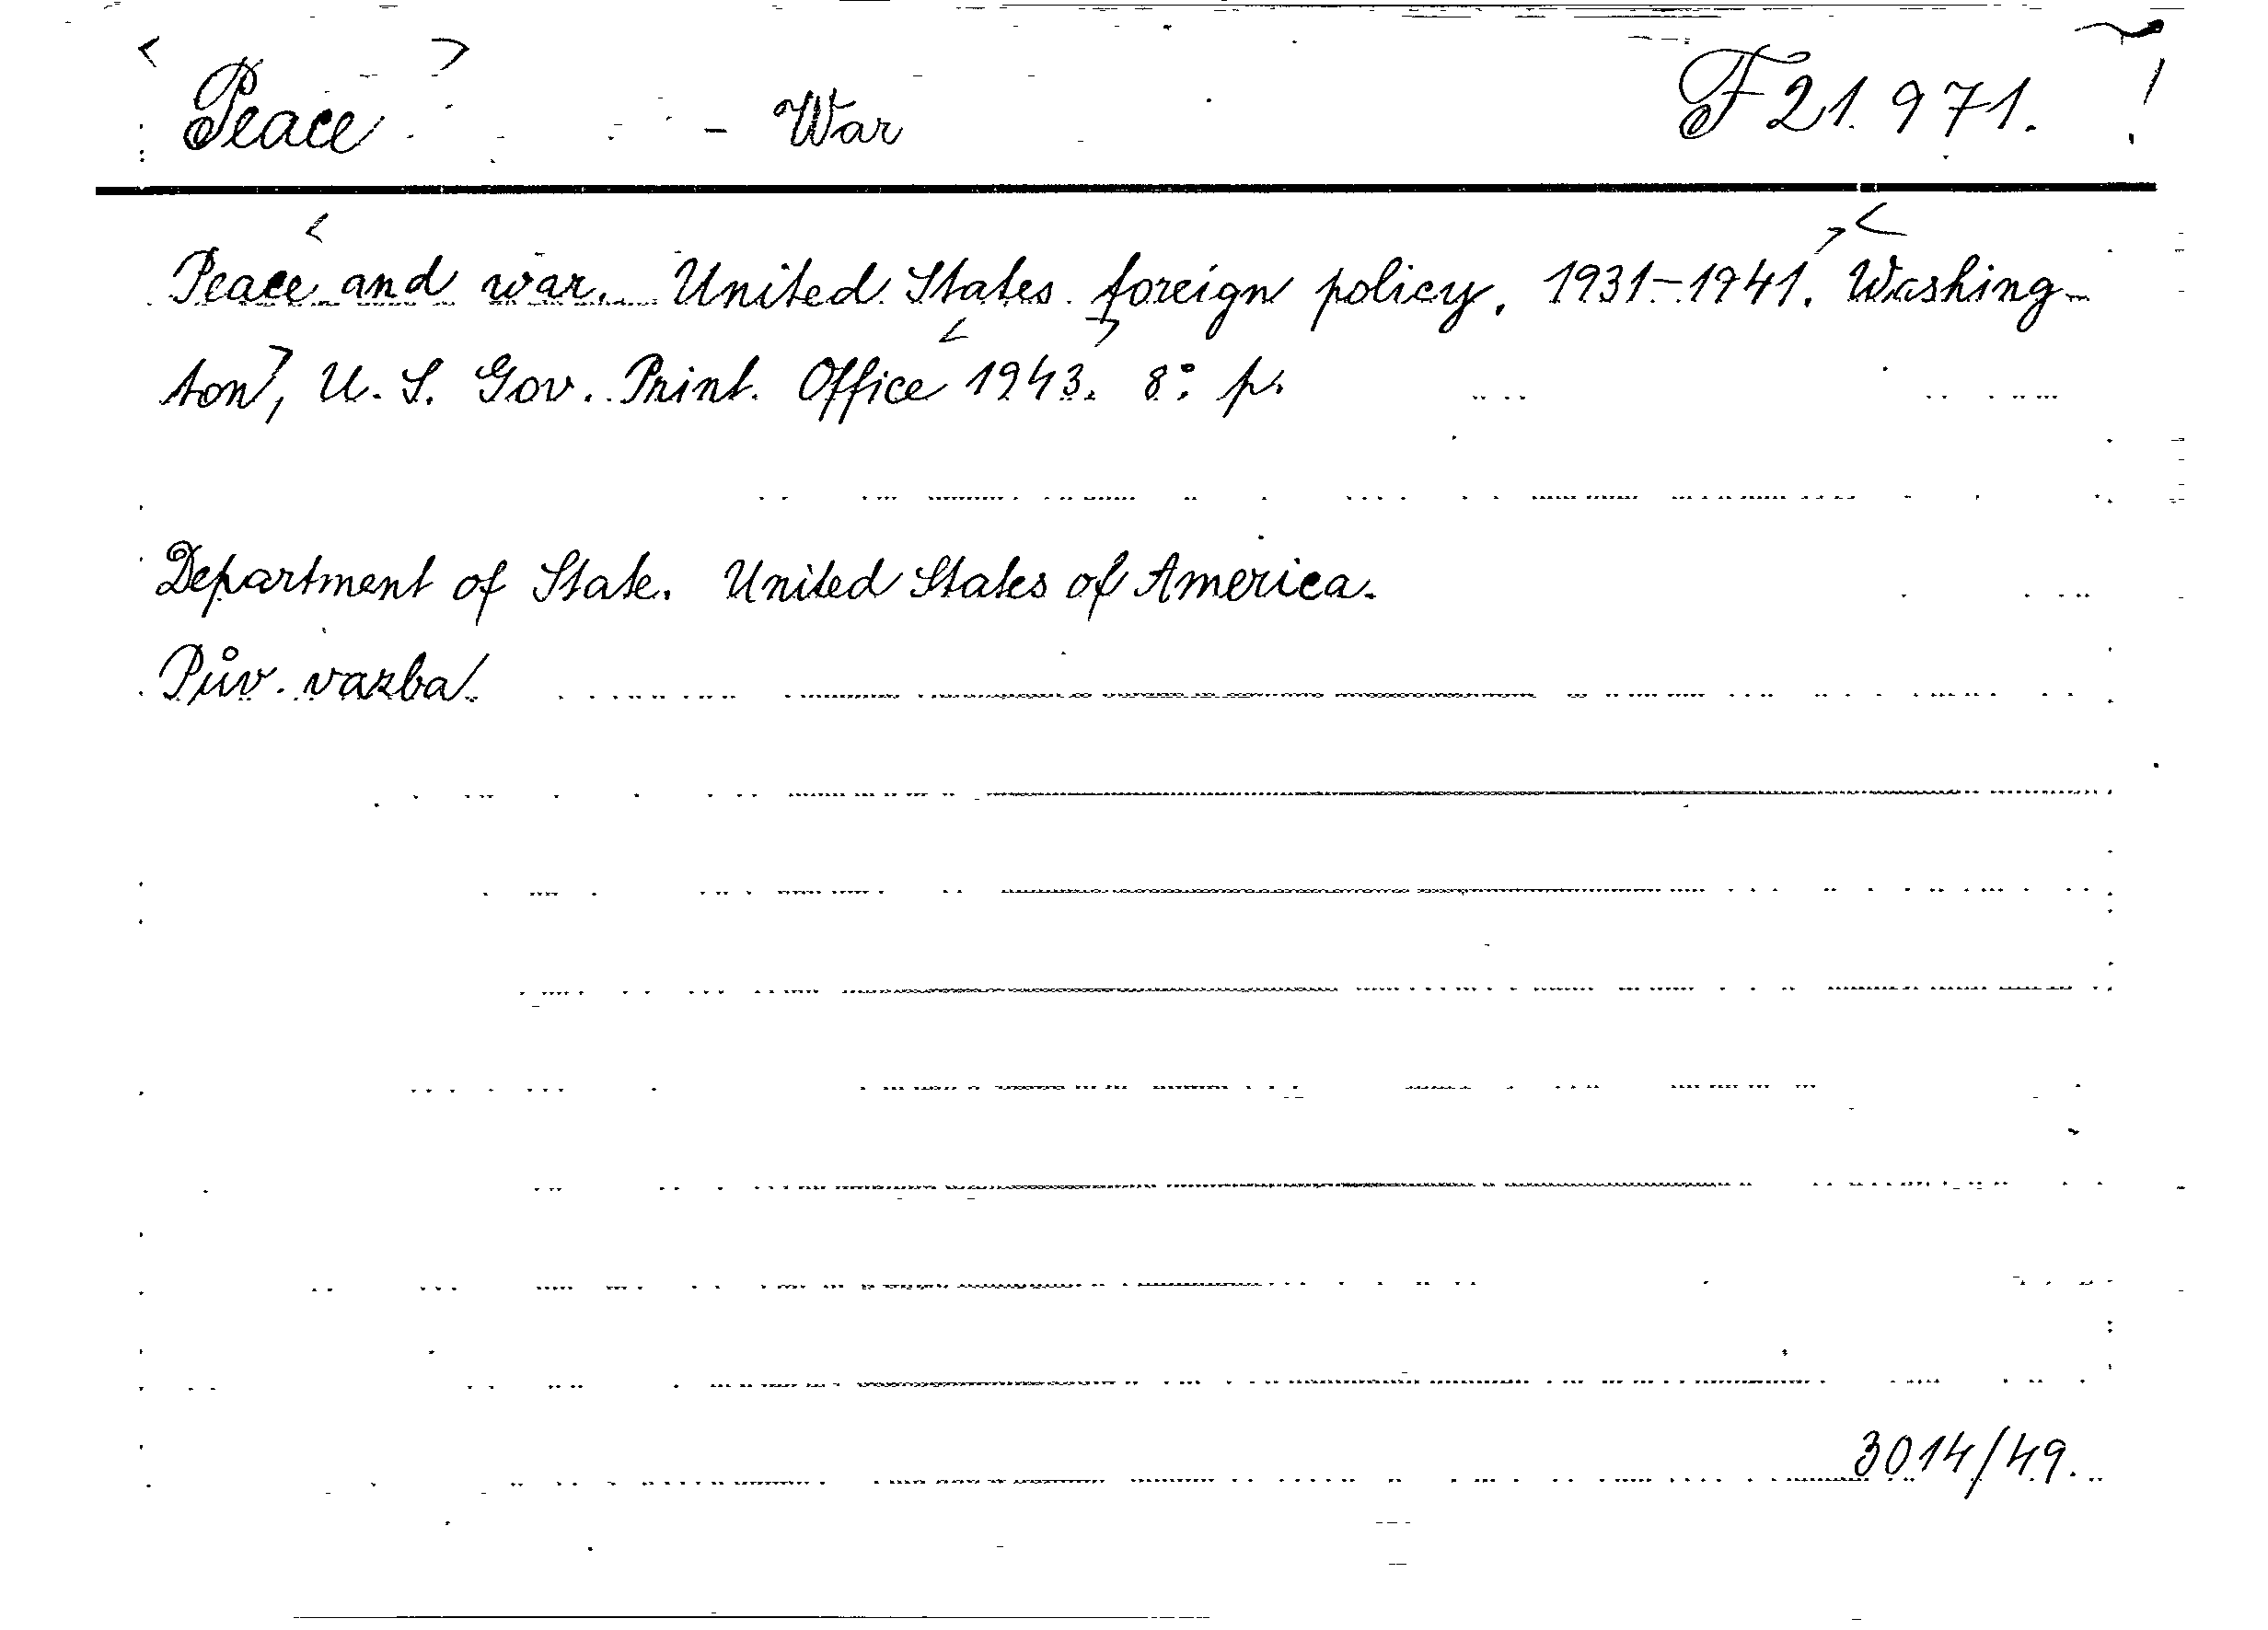 Peace - War F 21.971. !
Peace and war. United States foreign policy. 1931-1941. Washing-
ton, U. S. Gov. Print. Office 1943. 8°. p.
Department of State. United States of America.
Pův. vazba.
3014/49.